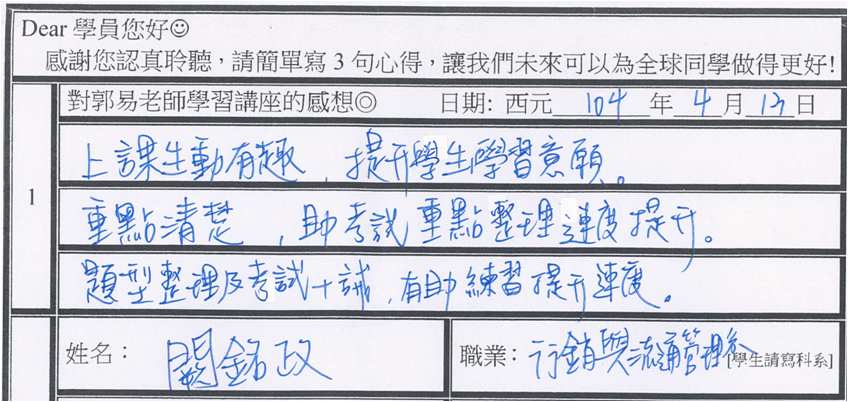 Dear 學員您好☺
感謝您認真聆聽，請簡單寫 3 句心得，讓我們未來可以為全球同學做得更好!
對郭易老師學習講座的感想◎ 日期: 西元 104 年 4 月 13 日
1
上課生動有趣，提升學生學習意願。
重點清楚，助考試重點整理速度提升。
題型整理及考試十誡，有助練習提升速度。
姓名： 闕銘政 職業： 行銷與流通管理系 [學生請寫科系]